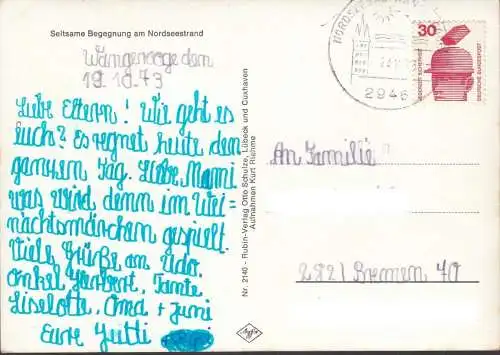 Seltsame Begegnung am Nordseestrand
Wangerooge den
19.10.73
Liebe Eltern! Wie geht es
Euch? Es regnet heute den
ganzen Tag. Liebe Mammi
was wird denn im Wei-
nachtsmärchen gespielt.
Viele Grüße an Udo,
Onkel Herbert, Tante
Liselotte, Oma + Juni
Eure Jutti
Nr. 2140 - Rubin-Verlag Otto Schulze, Lübeck und Cuxhaven
Aufnahmen Kurt Riehme
Agfa
2946
30
DEUTSCHE BUNDESPOST
An Familie
2821 Bremen 70